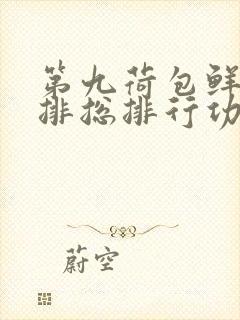 第九荷包鲜
排总排行功
蔚空